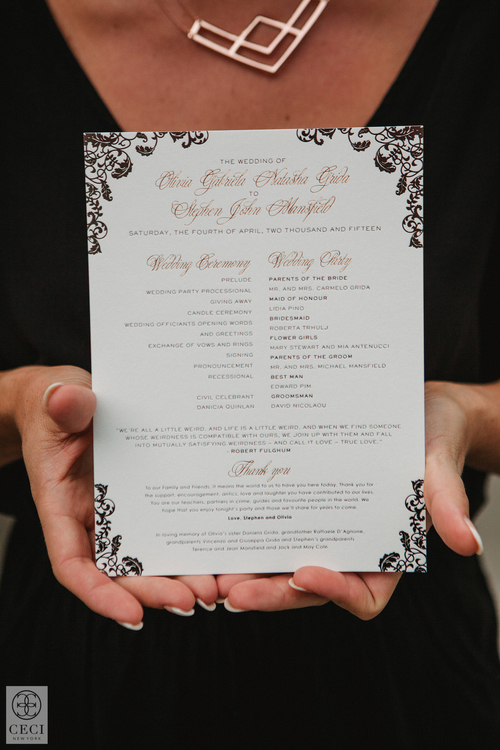 THE WEDDING OF
Olivia Gabriela Natasha Grida
TO
Stephen John Mansfield
SATURDAY, THE FOURTH OF APRIL, TWO THOUSAND AND FIFTEEN
Wedding Ceremony
PRELUDE
WEDDING PARTY PROCESSIONAL
GIVING AWAY
CANDLE CEREMONY
WEDDING OFFICIANTS OPENING WORDS
AND GREETINGS
EXCHANGE OF VOWS AND RINGS
SIGNING
PRONOUNCEMENT
RECESSIONAL
CIVIL CELEBRANT
DANICIA QUINLAN
Wedding Party
PARENTS OF THE BRIDE
MR. AND MRS. CARMELO GRIDA
MAID OF HONOUR
LIDIA PINO
BRIDESMAID
ROBERTA TRHULJ
FLOWER GIRLS
MARY STEWART AND MIA ANTENUCCI
PARENTS OF THE GROOM
MR. AND MRS. MICHAEL MANSFIELD
BEST MAN
EDWARD PIM
GROOMSMAN
DAVID NICOLAOU
"WE'RE ALL A LITTLE WEIRD, AND LIFE IS A LITTLE WEIRD, AND WHEN WE FIND SOMEONE
WHOSE WEIRDNESS IS COMPATIBLE WITH OURS, WE JOIN UP WITH THEM AND FALL
INTO MUTUALLY SATISFYING WEIRDNESS – AND CALL IT LOVE – TRUE LOVE."
- ROBERT FULGHUM
Thank you
To our Family and Friends, it means the world to us to have you here today. Thank you for
the support, encouragement, antics, love and laughter you have contributed to our lives.
You are our teachers, partners in crime, guides and favourite people in the world. We
hope that you enjoy tonight's party and those we'll share for years to come.
Love, Stephen and Olivia
In loving memory of Olivia's sister Daniela Grida, grandfather Raffaele D'Agnone,
grandparents Vincenzo and Giuseppa Grida and Stephen's grandparents
Terence and Jean Mansfield and Jack and May Cole
CECI
NEW YORK